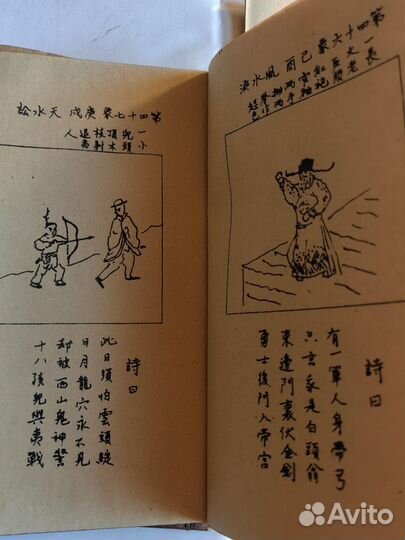 第四十六象 己酉 風水渙
詩曰
有一軍人身帶弓
只言我是白頭翁
東邊門裏伏金劍
勇士後門入帝宮
第四十七象庚戌 天水訟
一小兒頭頂木枝射追夷人
詩曰
此日須怕雲頭綻
日月龍穴永不見
却被西山鬼神驚
十八孩兒與夷戰
Avito